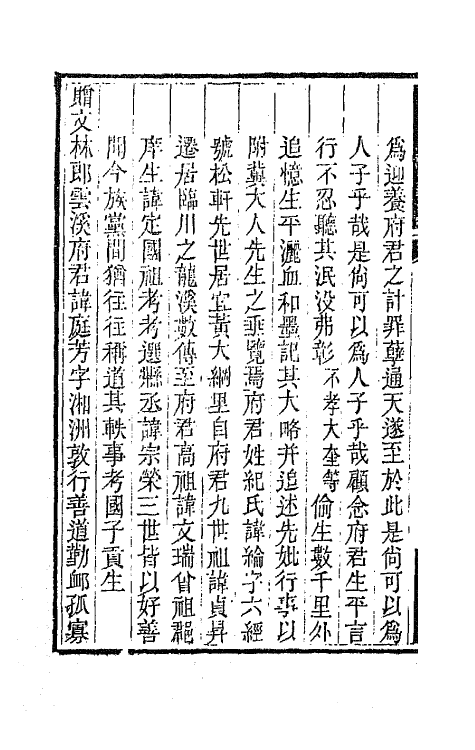 爲迎養府君之計罪孽通天遂至於此是尙可以爲
人子乎哉是尙可以爲人子乎哉顧念府君生平言
行不忍聽其泯没弗彰不孝大奎等偷生數千里外
追憶生平灑血和墨記其大略并追述先妣行事以
附冀大人先生之垂覽焉府君姓紀氏諱綸字六經
號松軒先世居宜黃大綱里自府君九世祖諱貞昇
遷居臨川之龍溪數傳至府君高祖諱文瑞曾祖郡
庠生諱定國祖考考選縣丞諱宗榮三世皆以好善
聞今族黨間猶往往稱道其軼事考國子貢生
贈文林郎雲溪府君諱庭芳字湘洲敦行善道勤卹孤寡